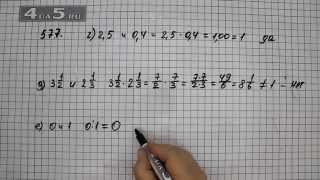 4GA5.RU
577. г) 2,5 и 0,4 = 2,5 · 0,4 = 1,00 = 1 да
д) 3 1/2 и 2 1/3 3 1/2 · 2 1/3 = 7/2 · 7/3 = 7·7/2·3 = 49/6 = 8 1/6 ≠ 1 – нет
е) 0 и 1 0·1 = 0